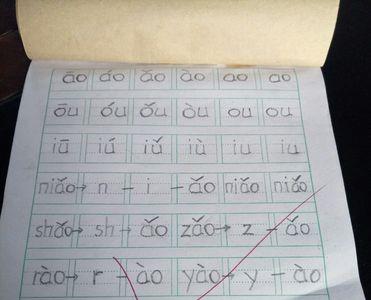 āo áo ǎo ào ao ao
ōu óu ǒu òu ou ou
iū iú iǔ iù iu iu
niǎo→ n - i - ǎo niǎo niǎo
shǎo→ sh - ǎo zǎo→ z - ǎo
rào→ r - ào yào→ y - ào